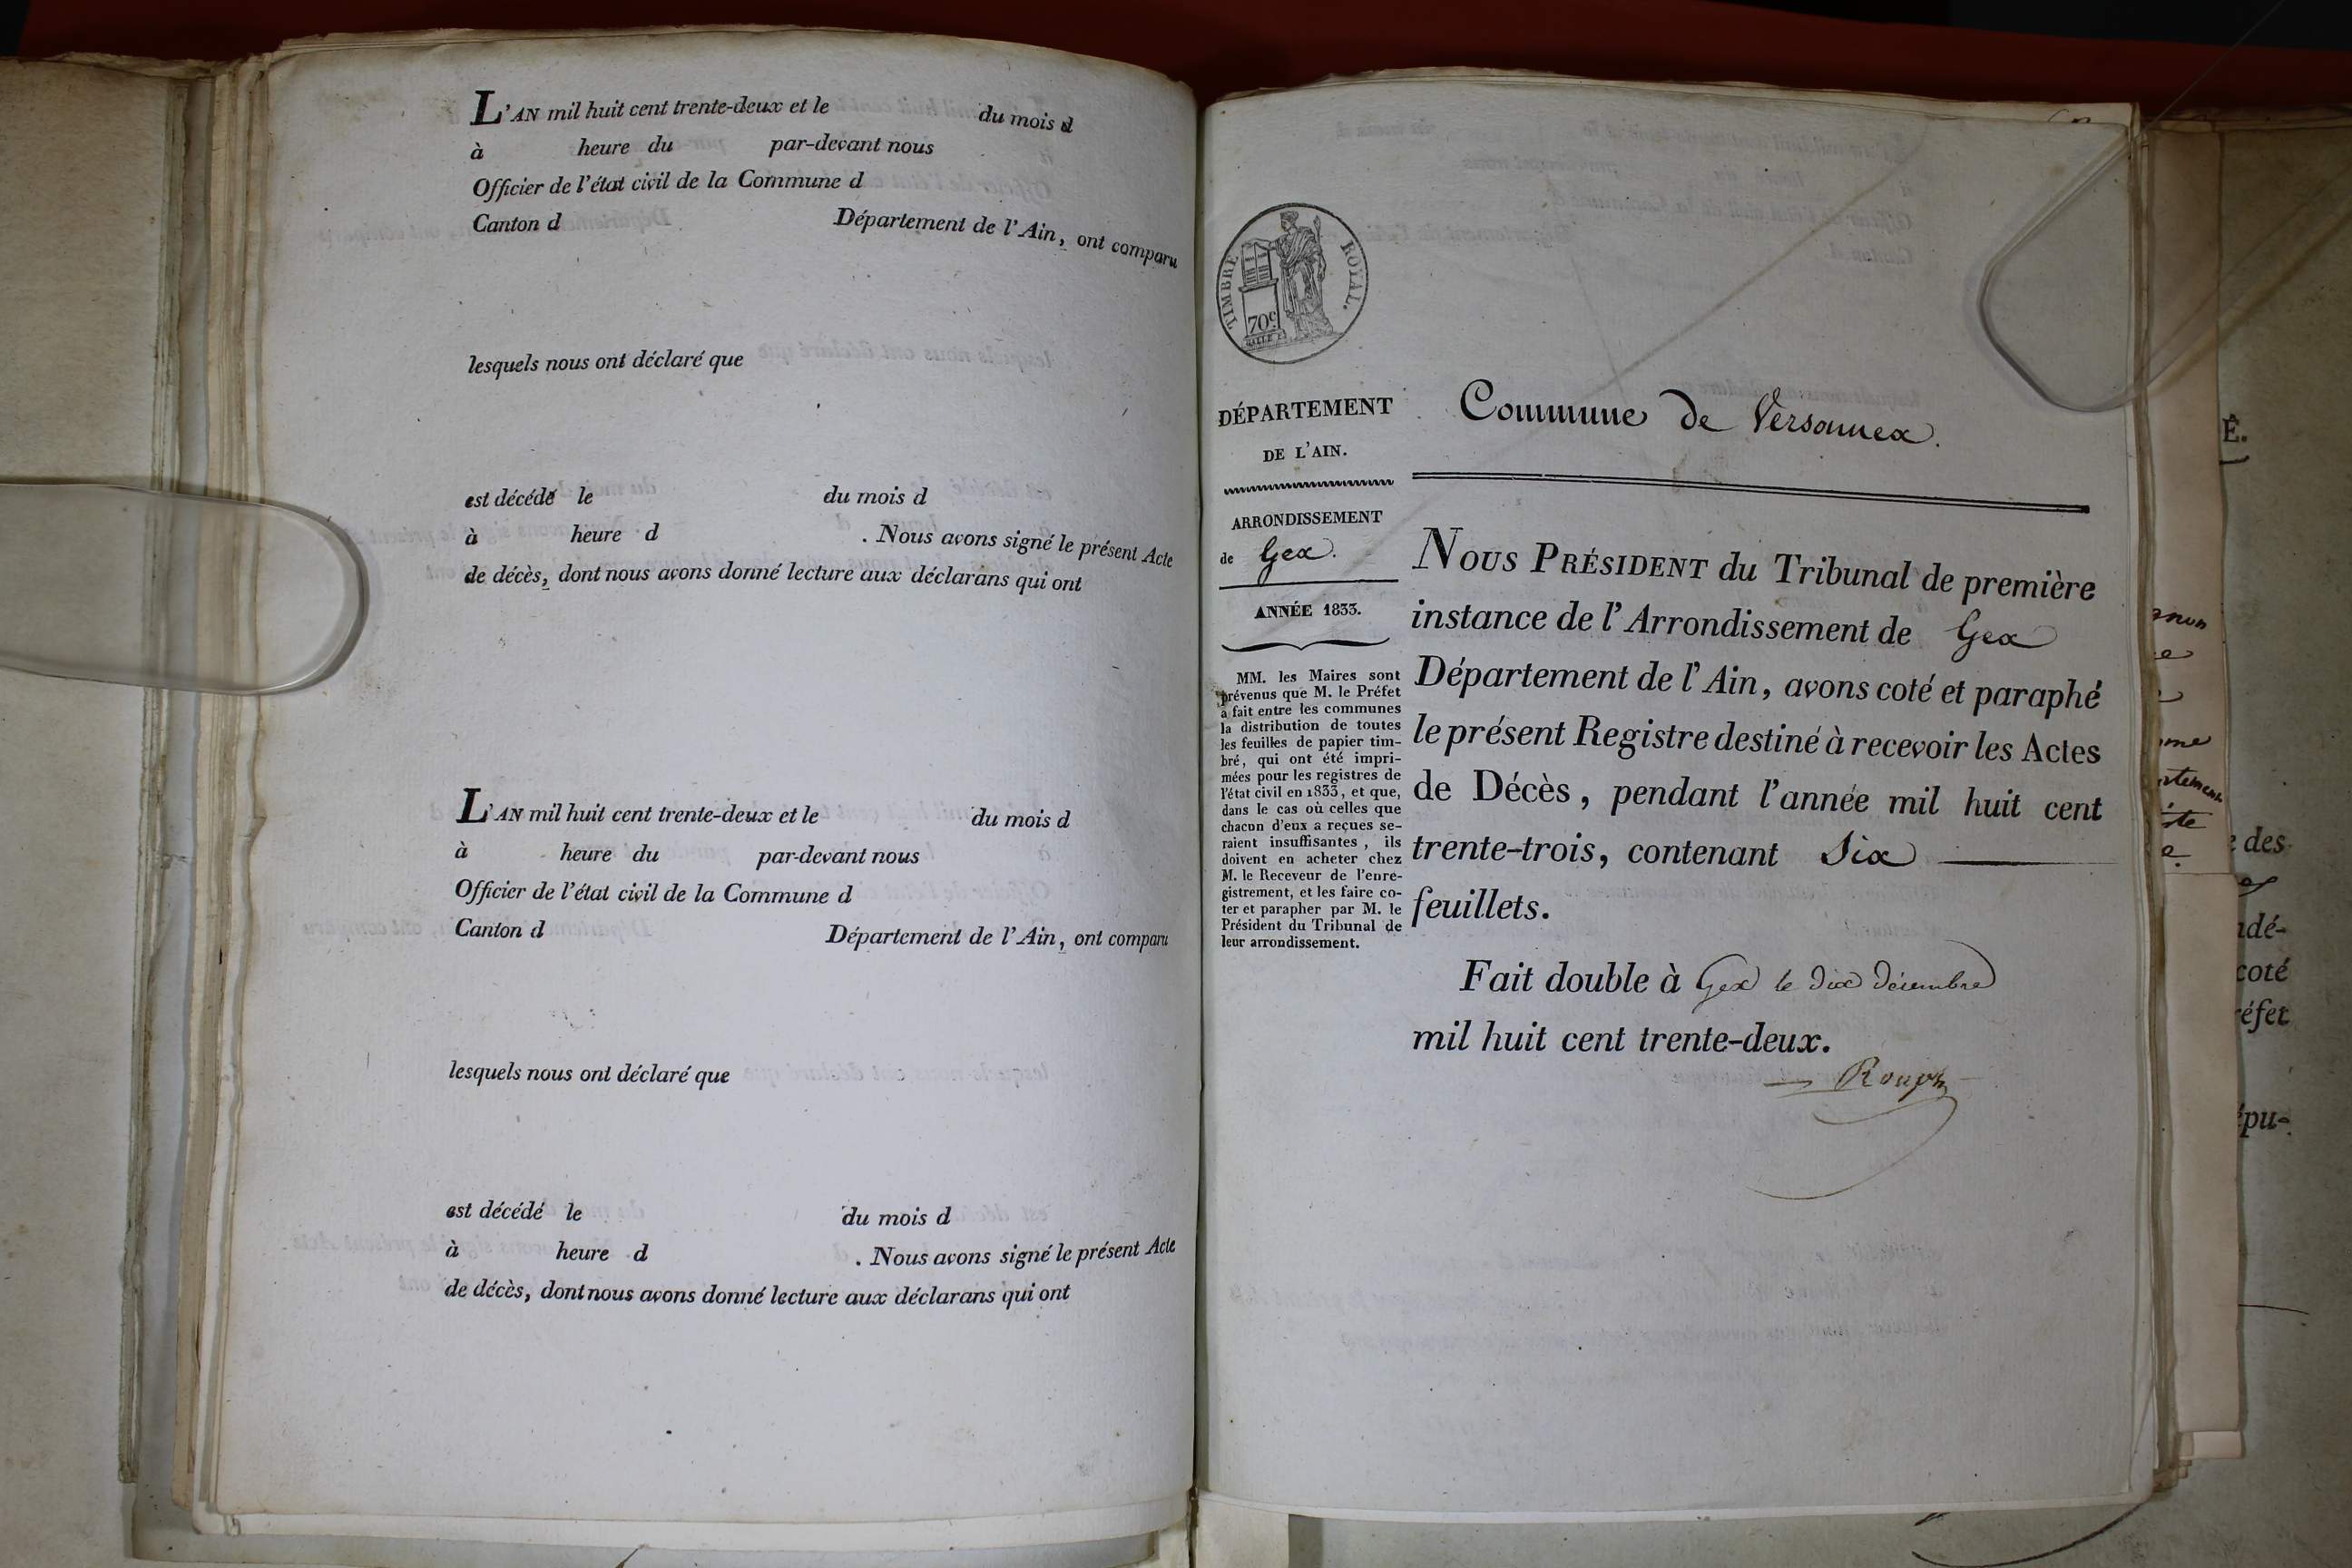 L'AN mil huit cent trente-deux et le du mois d
à heure du par-devant nous
Officier de l'état civil de la Commune d
Canton d Département de l'Ain, ont comparu
lesquels nous ont déclaré que
est décédé le du mois d
à heure d . Nous avons signé le présent Acte
de décès, dont nous avons donné lecture aux déclarans qui ont
L'AN mil huit cent trente-deux et le du mois d
à heure du par-devant nous
Officier de l'état civil de la Commune d
Canton d Département de l'Ain, ont comparu
lesquels nous ont déclaré que
est décédé le du mois d
à heure d . Nous avons signé le présent Acte
de décès, dont nous avons donné lecture aux déclarans qui ont
TIMBRE ROYAL.
70c
DÉPARTEMENT
DE L'AIN.
ARRONDISSEMENT
de Gex.
ANNÉE 1833.
MM. les Maires sont
prévenus que M. le Préfet
a fait entre les communes
la distribution de toutes
les feuilles de papier tim-
bré, qui ont été impri-
mées pour les registres de
l'état civil en 1833, et que,
dans le cas où celles que
chacun d'eux a reçues se-
raient insuffisantes, ils
doivent en acheter chez
M. le Receveur de l'enre-
gistrement, et les faire co-
ter et parapher par M. le
Président du Tribunal de
leur arrondissement.
Commune de Versonnex.
NOUS PRÉSIDENT du Tribunal de première
instance de l'Arrondissement de Gex
Département de l'Ain, avons coté et paraphé
le présent Registre destiné à recevoir les Actes
de Décès, pendant l'année mil huit cent
trente-trois, contenant Six
feuillets.
Fait double à Gex le dix décembre
mil huit cent trente-deux.
Ê.
des
ndé-
coté
réfet
épu-